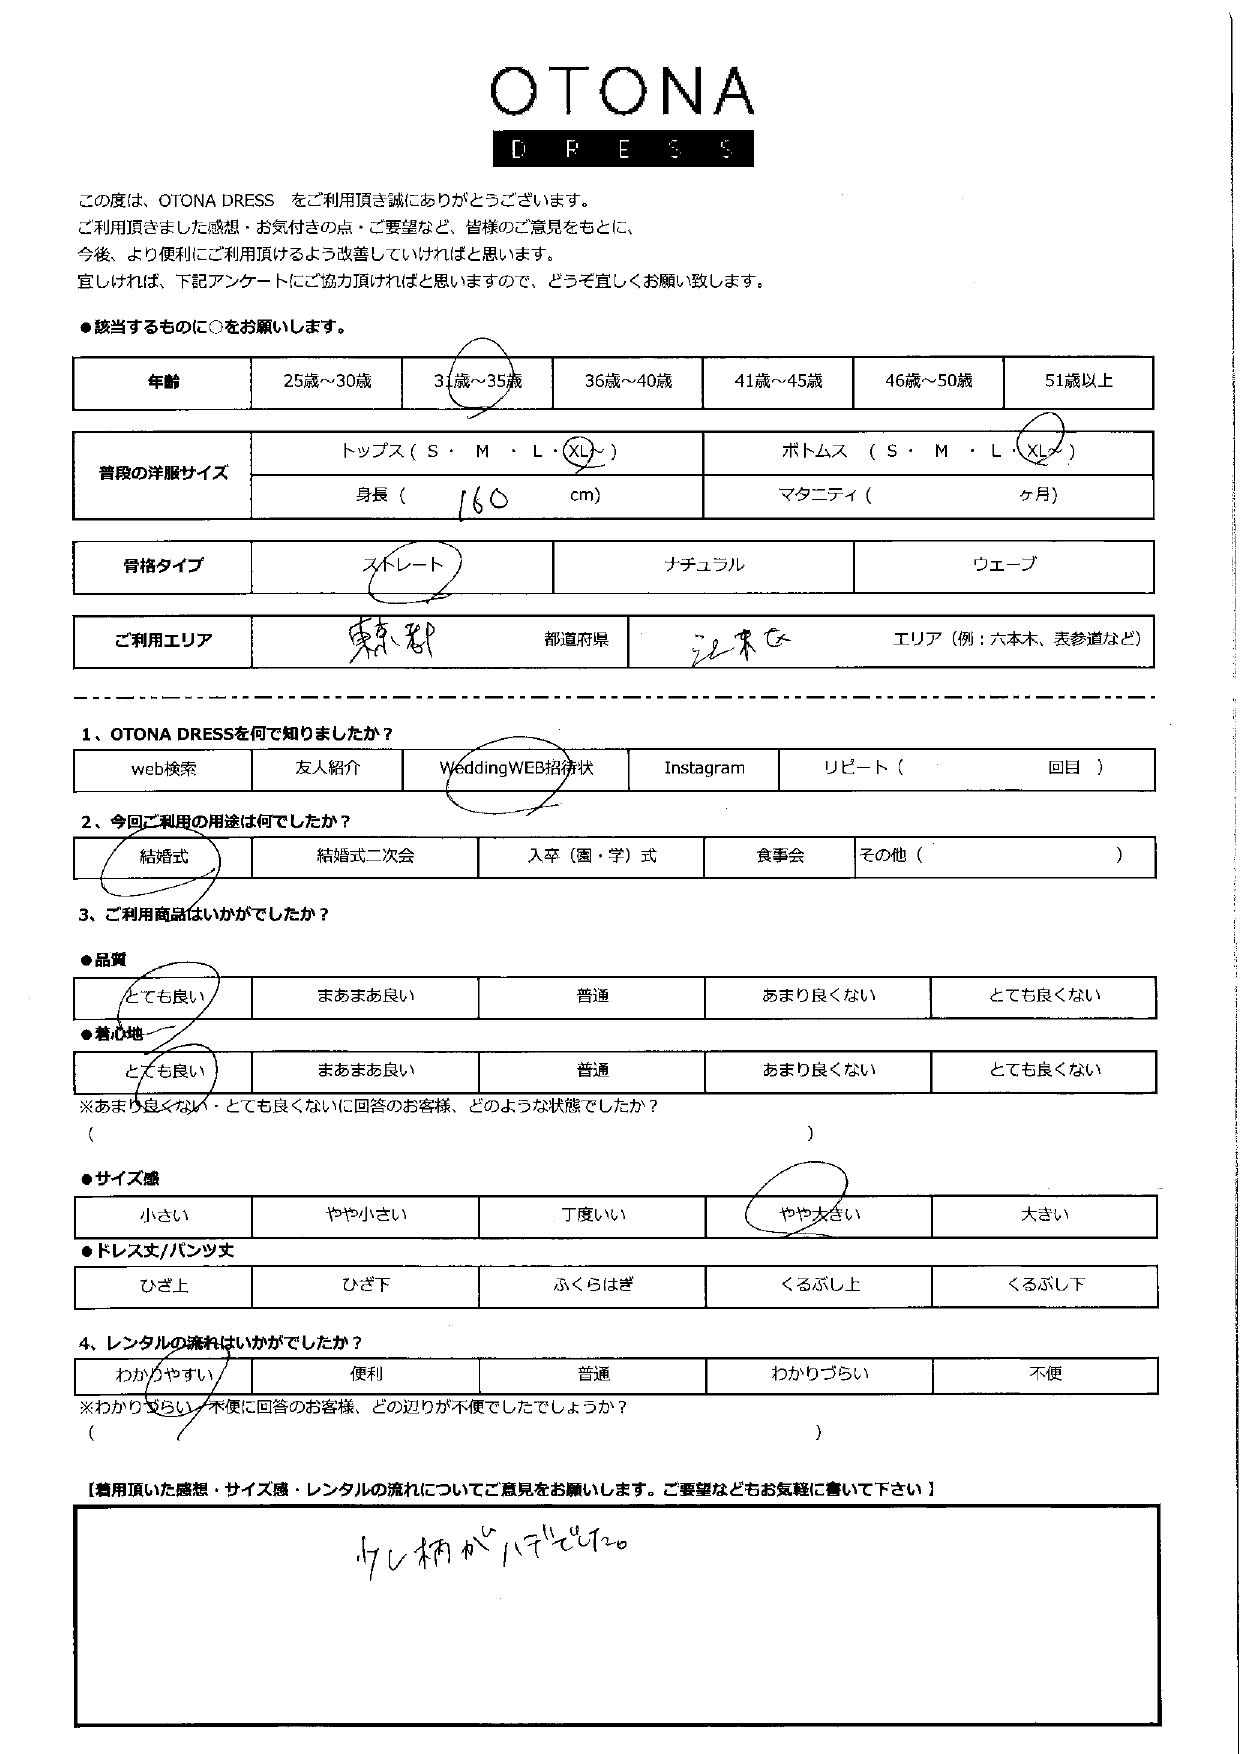 OTONA
DRESS
この度は、OTONA DRESS　をご利用頂き誠にありがとうございます。
ご利用頂きました感想・お気付きの点・ご要望など、皆様のご意見をもとに、
今後、より便利にご利用頂けるよう改善していければと思います。
宜しければ、下記アンケートにご協力頂ければと思いますので、どうぞ宜しくお願い致します。
●該当するものに○をお願いします。
年齢 25歳～30歳 31歳～35歳 36歳～40歳 41歳～45歳 46歳～50歳 51歳以上
普段の洋服サイズ
トップス ( S ・ M ・ L ・ XL～ ) ボトムス ( S ・ M ・ L ・ XL～ )
身長 ( 160 cm) マタニティ ( ヶ月)
骨格タイプ ストレート ナチュラル ウェーブ
ご利用エリア 東京都 都道府県 江東区 エリア（例：六本木、表参道など）
1、OTONA DRESSを何で知りましたか？
web検索 友人紹介 WeddingWEB招待状 Instagram リピート ( 回目 )
2、今回ご利用の用途は何でしたか？
結婚式 結婚式二次会 入卒（園・学）式 食事会 その他 ( )
3、ご利用商品はいかがでしたか？
●品質
とても良い まあまあ良い 普通 あまり良くない とても良くない
●着心地
とても良い まあまあ良い 普通 あまり良くない とても良くない
※あまり良くない・とても良くないに回答のお客様、どのような状態でしたか？
( )
●サイズ感
小さい やや小さい 丁度いい やや大きい 大きい
●ドレス丈/パンツ丈
ひざ上 ひざ下 ふくらはぎ くるぶし上 くるぶし下
4、レンタルの流れはいかがでしたか？
わかりやすい 便利 普通 わかりづらい 不便
※わかりづらい・不便に回答のお客様、どの辺りが不便でしたでしょうか？
( )
【着用頂いた感想・サイズ感・レンタルの流れについてご意見をお願いします。ご要望などもお気軽に書いて下さい 】
少し柄がハデでした。